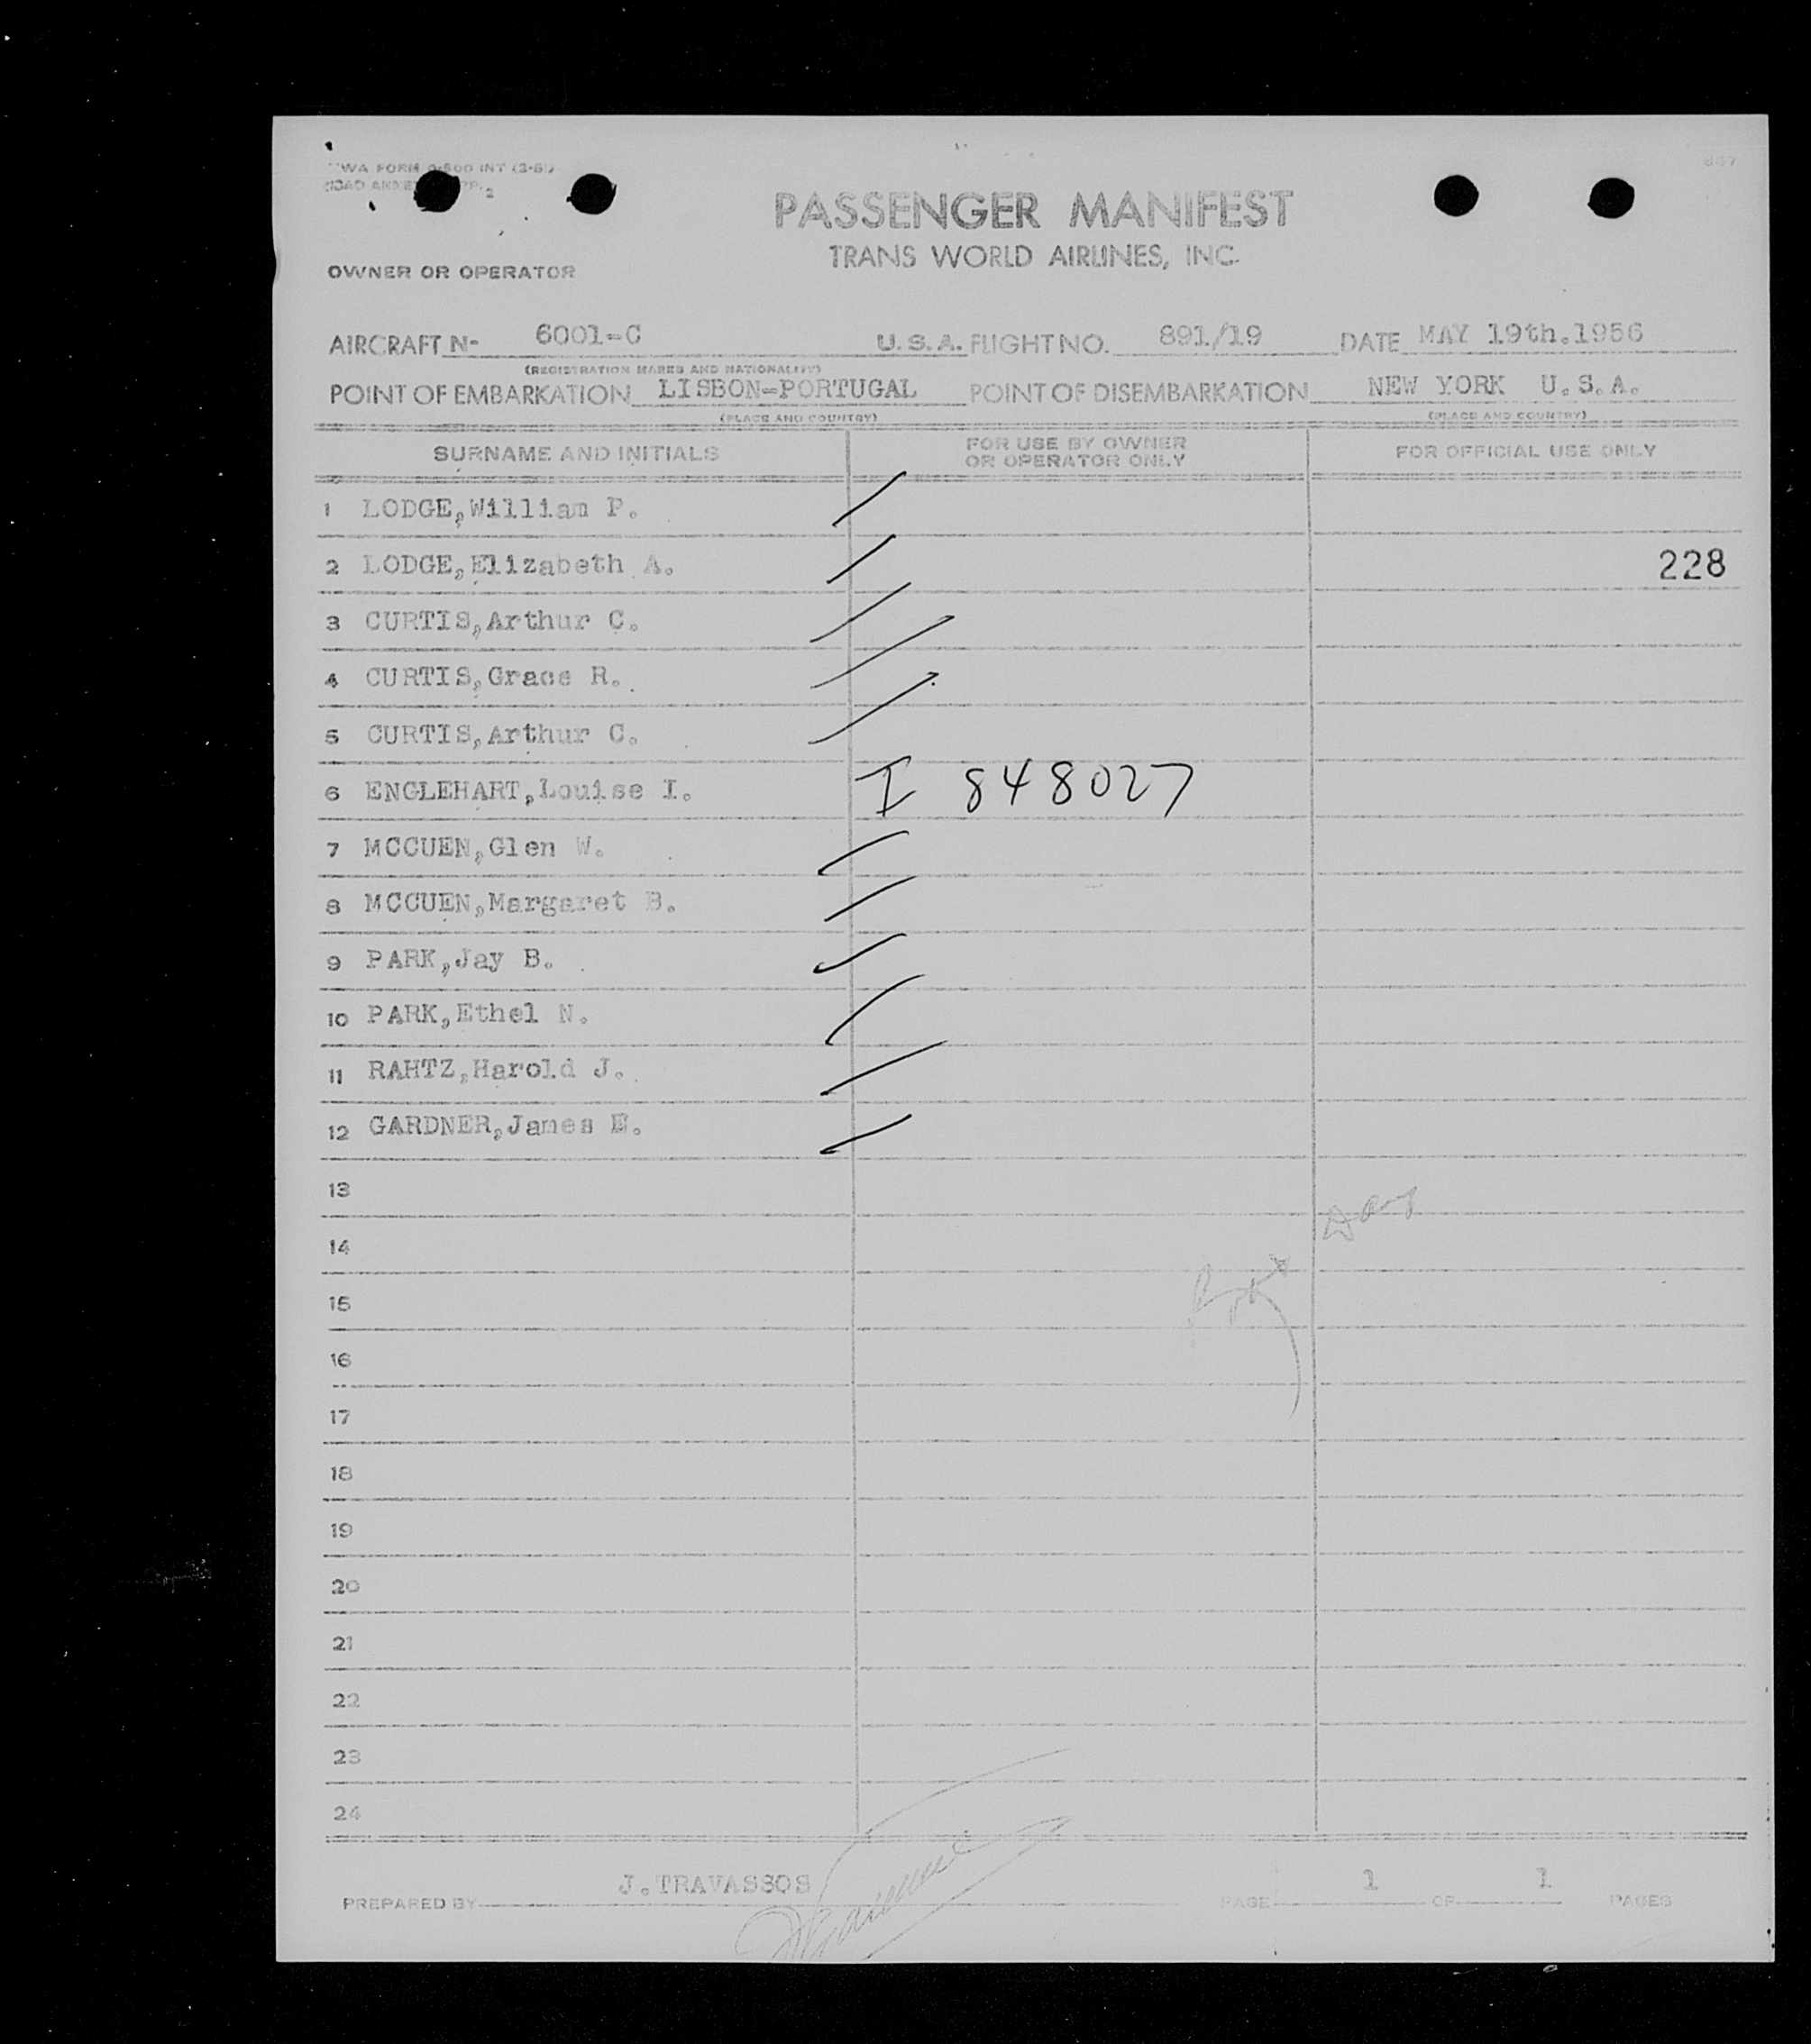 PASSENGER MANIFEST
TRANS WORLD AIRLINES, INC.
OWNER OR OPERATOR
AIRCRAFT N- 6001-C U.S.A. FLIGHT NO. 891/19 DATE MAY 19th.1956
(REGISTRATION MARKS AND NATIONALITY)
POINT OF EMBARKATION LISBON-PORTUGAL POINT OF DISEMBARKATION NEW YORK U.S.A.
(PLACE AND COUNTRY) (PLACE AND COUNTRY)
SURNAME AND INITIALS FOR USE BY OWNER OR OPERATOR ONLY FOR OFFICIAL USE ONLY
1 LODGE,William P.
2 LODGE,Elizabeth A. 228
3 CURTIS,Arthur C.
4 CURTIS,Grace R.
5 CURTIS,Arthur C.
6 ENGLEHART,Louise I. I 848027
7 MCCUEN,Glen W.
8 MCCUEN,Margaret B.
9 PARK,Jay B.
10 PARK,Ethel N.
11 RAHTZ,Harold J.
12 GARDNER,James E.
13
14
15
16
17
18
19
20
21
22
23
24
PREPARED BY J.TRAVASSOS PAGE 1 OF 1 PAGES